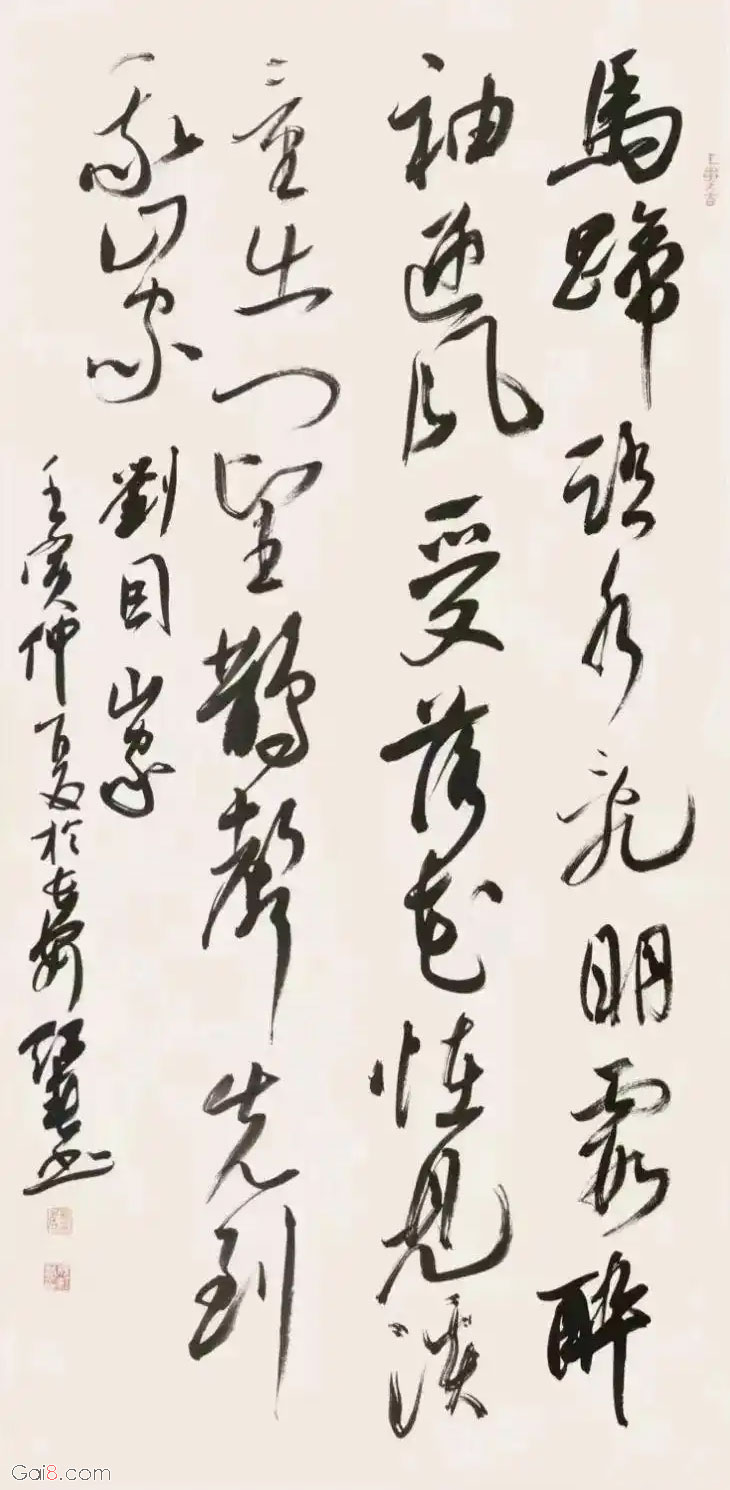 馬蹄踏水亂明霞醉
袖迎風受落花怪見溪
童出門望鵲聲先到
我山家
劉因山家
壬寅仲夏於
書
Gai8.com